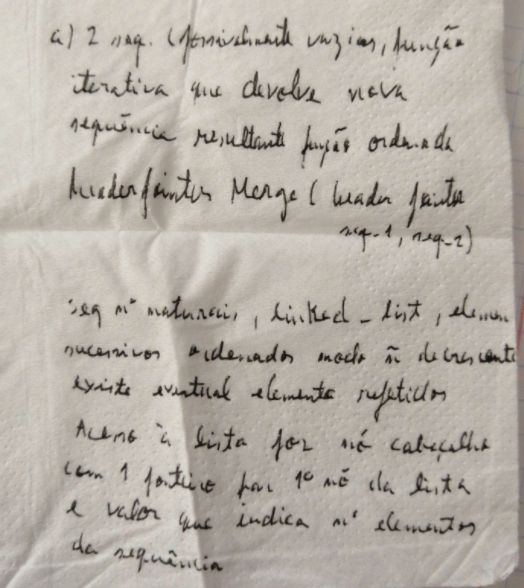 a) 2 seq. (possivelmente vazias, função
iterativa que devolve nova
sequência resultante fusão ordenada
headerpointer Merge (header pointer
seq-1, seq-2)
seq nº naturais, linked_list, elemen
sucessivos ordenados modo ñ decrescente
existe eventual elementos repetidos
Acesso à lista por nó cabeçalho
com 1 ponteiro para 1º nó da lista
e valor que indica nº elementos
da sequência